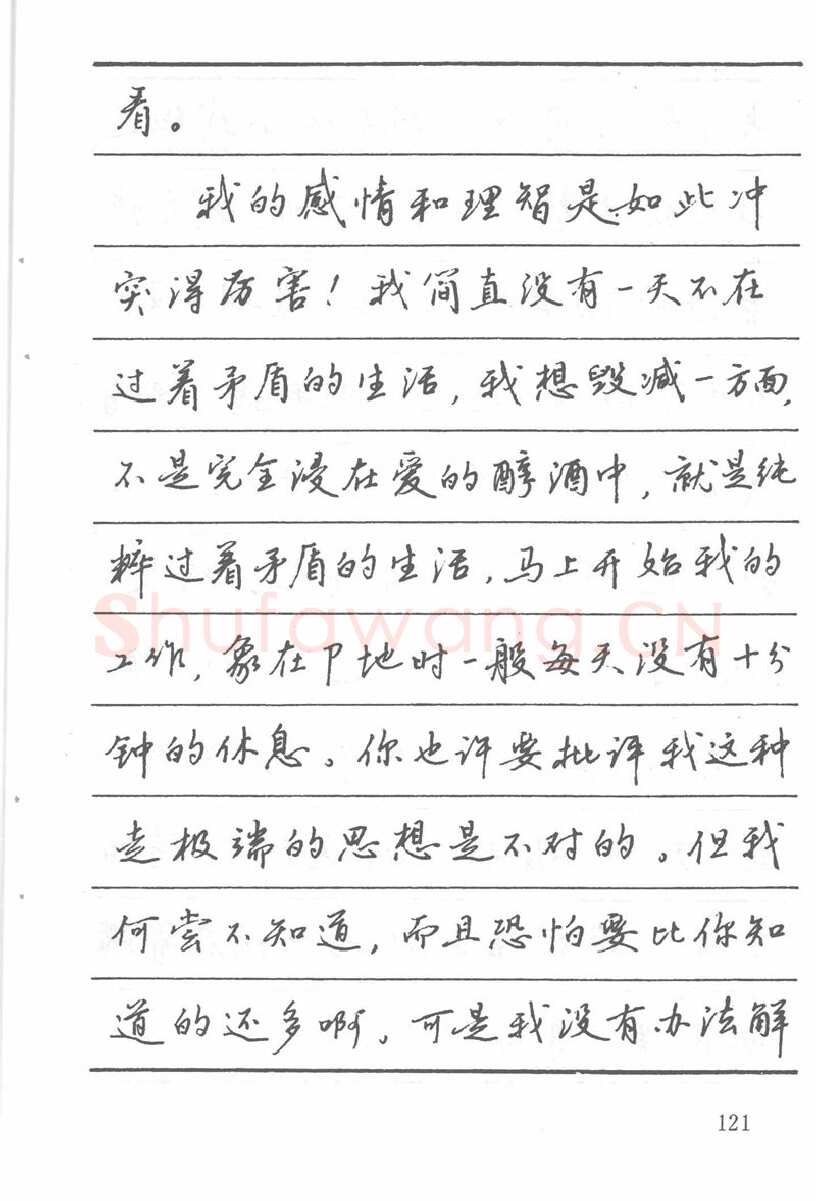 看。
我的感情和理智是如此冲
突得厉害！我简直没有一天不在
过着矛盾的生活，我想毁减一方面，
不是完全浸在爱的醇酒中，就是纯
粹过着矛盾的生活，马上开始我的
工作，象在P地时一般每天没有十分
钟的休息。你也许要批评我这种
走极端的思想是不对的。但我
何尝不知道，而且恐怕要比你知
道的还多啊。可是我没有办法解
shufawang.CN
121